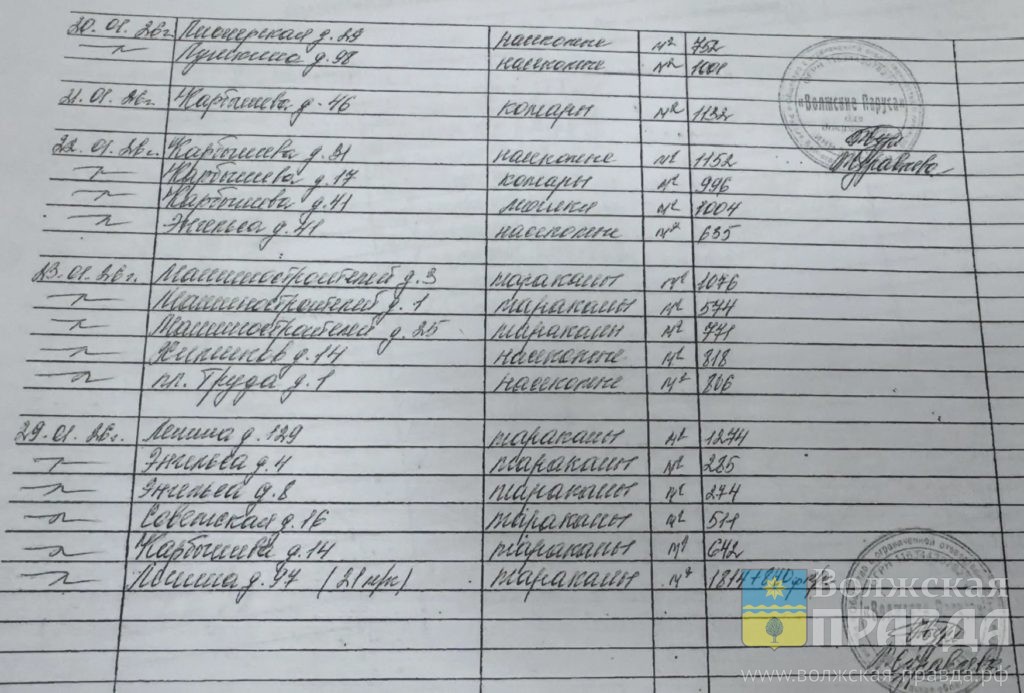 20.01.26г. Пионерская д.29 насекомые м² 752
–"– Пушкина д.98 насекомые м² 1001
21.01.26г. Карбышева д.46 комары м² 1132
«Волжские Паруса»
22.01.26г. Карбышева д.31 насекомые м² 1152
Журавлева
–"– Карбышева д.17 комары м² 996
–"– Карбышева д.41 мошки м² 1004
–"– Энгельса д.41 насекомые м² 635
23.01.26г. Машиностроителей д.3 тараканы м² 1076
–"– Машиностроителей д.1 тараканы м² 574
–"– Машиностроителей д.25 тараканы м² 771
–"– Химиков д.14 насекомые м² 818
–"– пл. Труда д.1 насекомые м² 806
29.01.26г. Ленина д.129 тараканы м² 1274
–"– Энгельса д.4 тараканы м² 285
–"– Энгельса д.8 тараканы м² 274
–"– Советская д.16 тараканы м² 511
–"– Карбышева д.14 тараканы м² 642
–"– Ленина д.97 тараканы м² 1814+840
Волжская
ПРАВДА
www.волжская-правда.рф